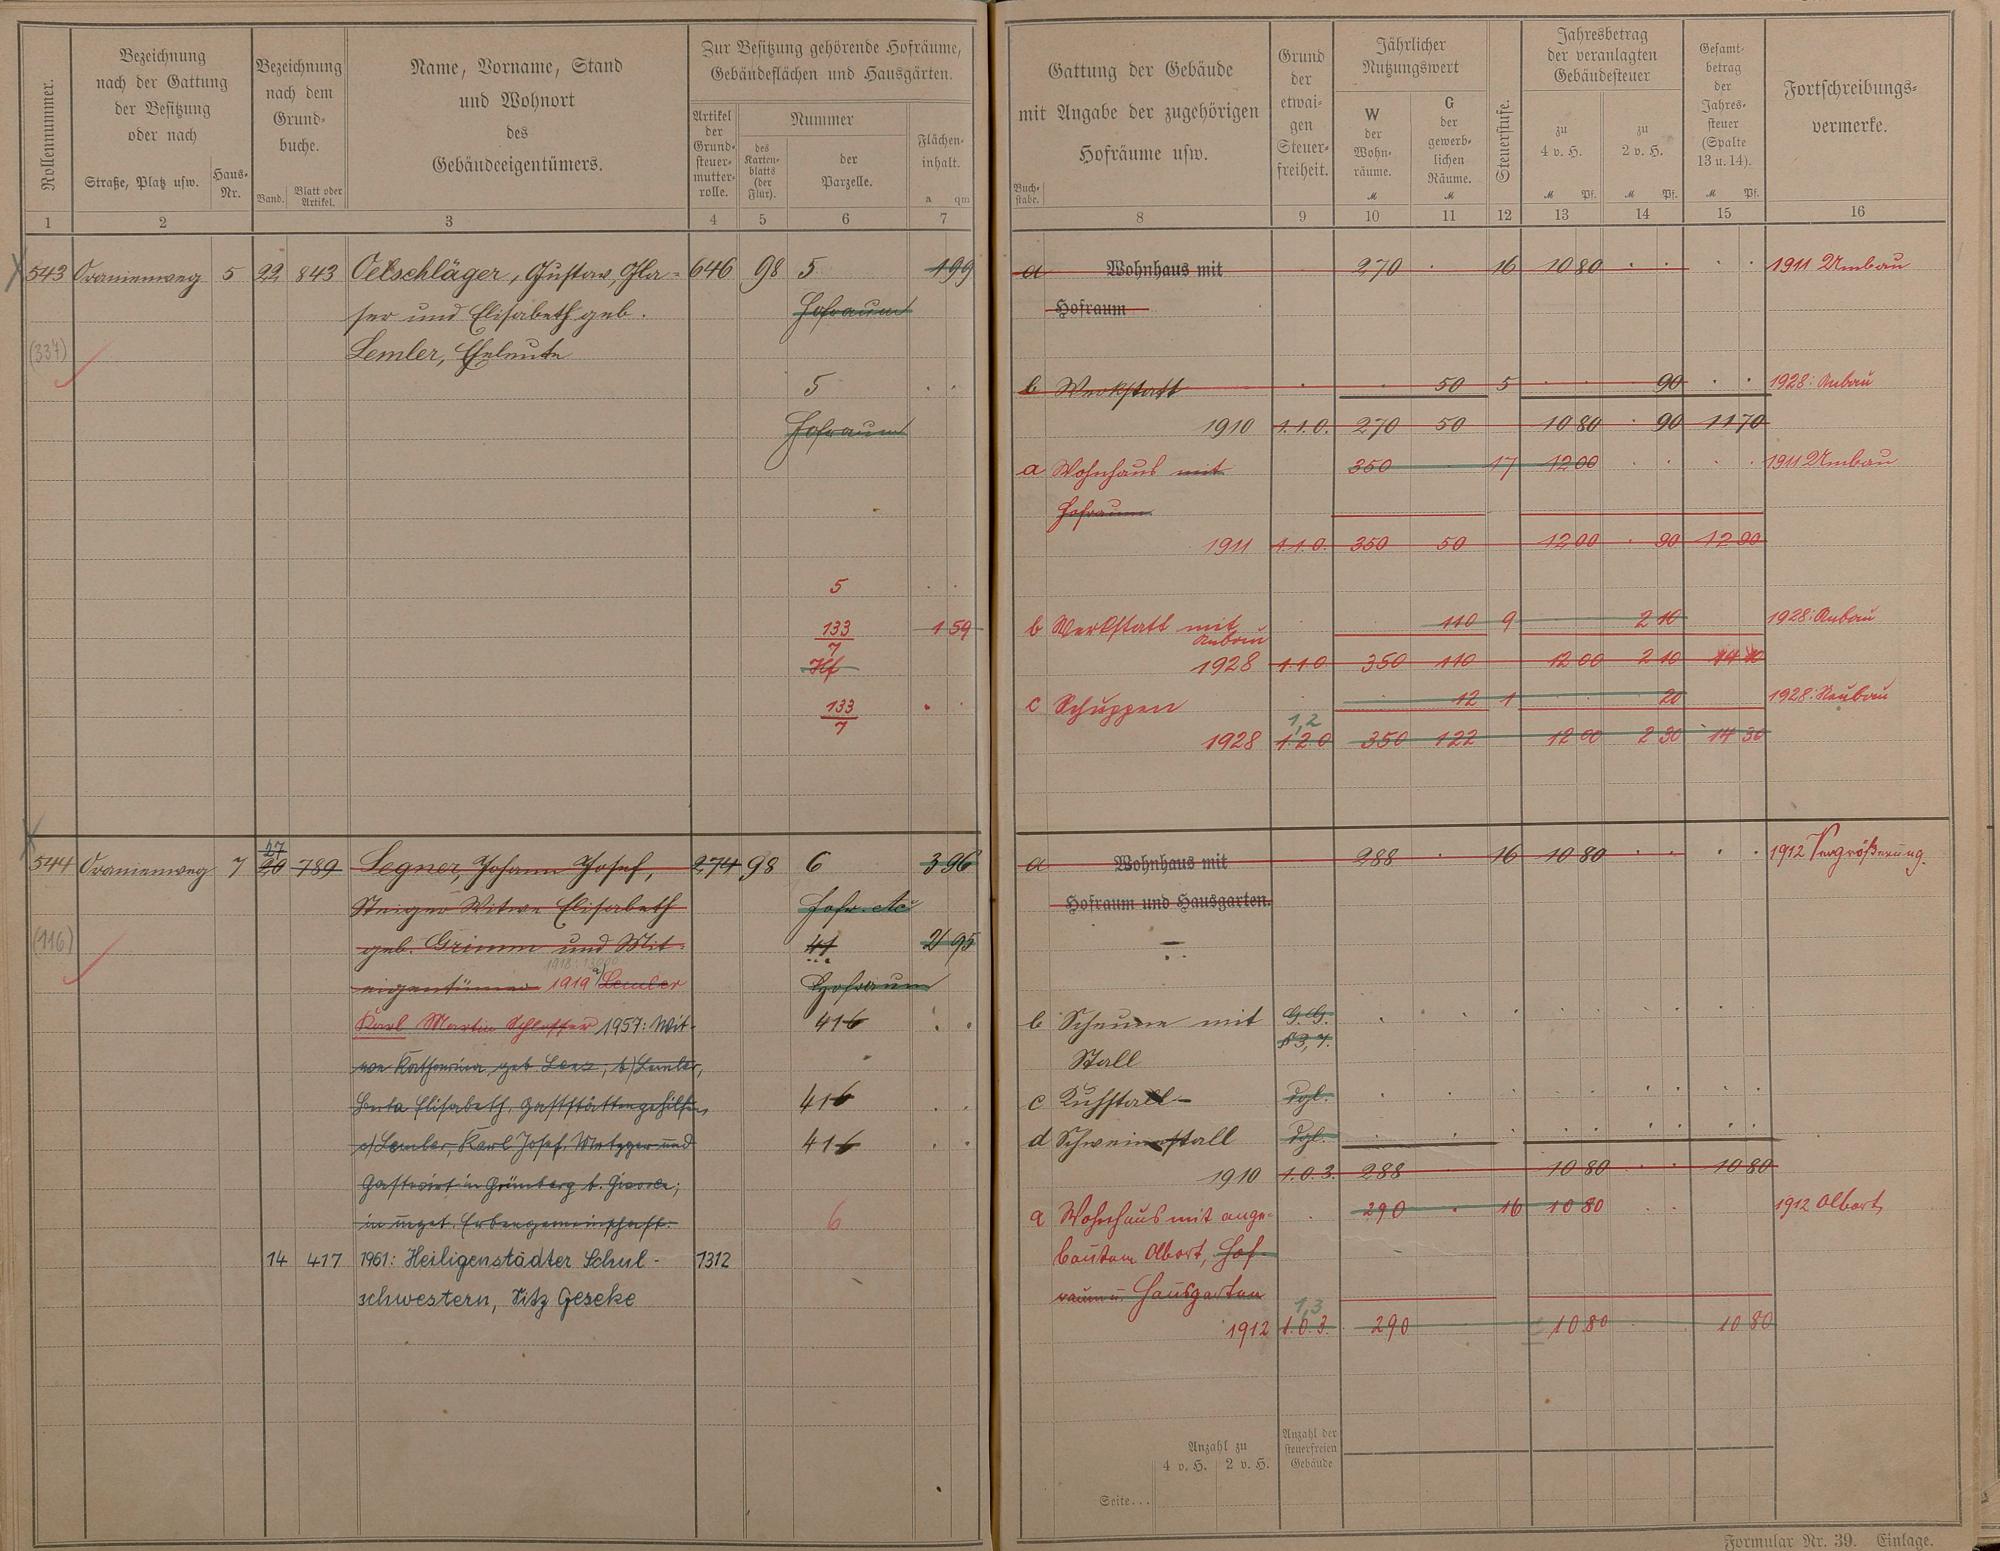 Rollennummer.
Bezeichnung
nach der Gattung
der Besitzung
oder nach
Straße, Platz usw.
Haus-
Nr.
Bezeichnung
nach dem
Grund-
buche.
Band.
Blatt oder
Artikel.
Name, Vorname, Stand
und Wohnort
des
Gebäudeeigentümers.
Zur Besitzung gehörende Hofräume,
Gebäudeflächen und Hausgärten.
Artikel
der
Grund-
steuer-
mutter-
rolle.
Nummer
des
Karten-
blatts
(der
Flur).
der
Parzelle.
Flächen-
inhalt.
a qm
1 2 3 4 5 6 7
543 Oranienweg 5 22 843 Oelschläger, Gustav, Gla- 646 98 5 1 99
ser und Elisabeth geb. Hofraum
(337) Lemler, Eheleute
5 . .
Hofraum
5 . .
133/7 1 59
Hf
133/7 . .
27
544 Oranienweg 7 20 789 Legner, Johann Josef, 274 98 6 3 96
Steiger Witwe Elisabeth Hofr.
(116) geb. Grimm und Mit- 41 2 95
eigentümer 1919 Lemler Hofraum
Karl Martin Schlosser 1957: Wit- 416 . .
we Katharina, geb. b) Lemler,
Elisabeth, Gaststättengehilfin, 416 . .
c) Lemler, Karl Josef, Metzger und 416 . .
Gastwirt in Grünberg b.
in unget. Erbengemeinschaft. 6
14 417 1961: Heiligenstädter Schul- 1312
schwestern, Sitz Geseke
Gattung der Gebäude
mit Angabe der zugehörigen
Hofräume usw.
Buch-
stabe.
Grund
der
etwai-
gen
Steuer-
freiheit.
Jährlicher
Nutzungswert
W
der
Wohn-
räume.
M
G
der
gewerb-
lichen
Räume.
M
Steuerstufe.
Jahresbetrag
der veranlagten
Gebäudesteuer
zu
4 v. H.
M Pf.
zu
2 v. H.
M Pf.
Gesamt-
betrag
der
Jahres-
steuer
(Spalte
13 u. 14).
M Pf.
Fortschreibungs-
vermerke.
8 9 10 11 12 13 14 15 16
a Wohnhaus mit 270 . 16 10 80 . . . . 1911 Umbau
Hofraum
b Werkstatt . . 50 5 . . . 90 . . 1928: Anbau
1910 1.1.0. 270 50 10 80 . 90 11 70
a Wohnhaus mit 350 17 12 00 . . . . 1911 Umbau
Hofraum
1911 1.1.0. 350 50 12 00 . 90 12 90
b Werkstatt mit 110 9 2 10 1928: Anbau
Anbau
1928 1.1.0 350 110 12 00 2 10 14 10
c Schuppen . . 12 1 . . 20 1928: Neubau
1,2
1928 1.2.0 350 122 12 00 2 30 14 30
a Wohnhaus mit 288 . 16 10 80 . . . . 1912 Vergrößerung.
Hofraum und Hausgarten.
b Scheune mit G.G.
Stall §3,7.
c Kuhstall dgl.
d Schweinestall dgl.
1910 1.0.3. 288 10 80 . . 10 80
a Wohnhaus mit ange- . 290 . 16 10 80 . . 1912 Abort
bautem Abort, Hof-
raum u. Hausgarten
1,3
1912 1.0.3. 290 10 80 . 10 80
Anzahl zu
4 v. H. 2 v. H.
Anzahl der
steuerfreien
Gebäude
Seite...
Formular Nr. 39. Einlage.